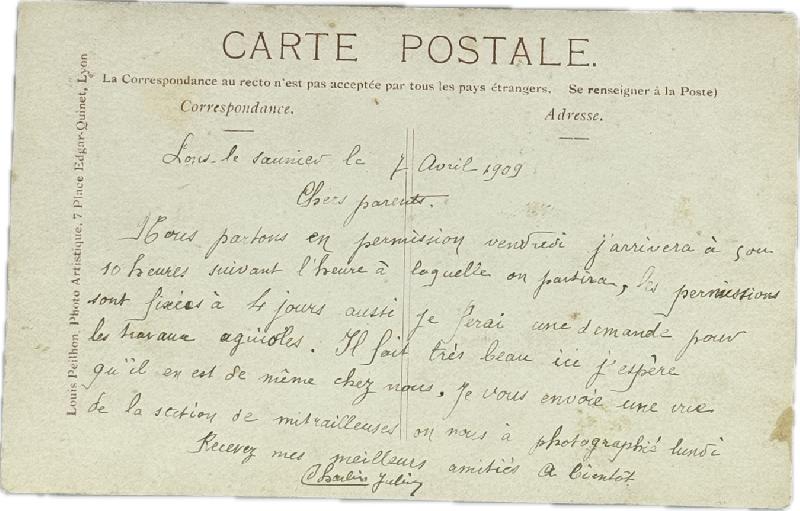 CARTE POSTALE.
La Correspondance au recto n'est pas acceptée par tous les pays étrangers. Se renseigner à la Poste)
Correspondance.
Adresse.
Louis Peilhon, Photo Artistique, 7 Place Edgar-Quinet, Lyon
Lons-le saunier le 7 Avril 1909
Chers parents.
Nous partons en permission vendredi j'arrivera à 9 ou
10 heures suivant l'heure à laquelle on partira, les permissions
sont fixées à 4 jours aussi je ferai une demande pour
les travaux agricoles. Il fait très beau ici j'espère
qu'il en est de même chez nous. Je vous envoie une vue
de la section de mitrailleuses on nous à photographiés lundi
Recevez mes meilleurs amitiés A bientôt.